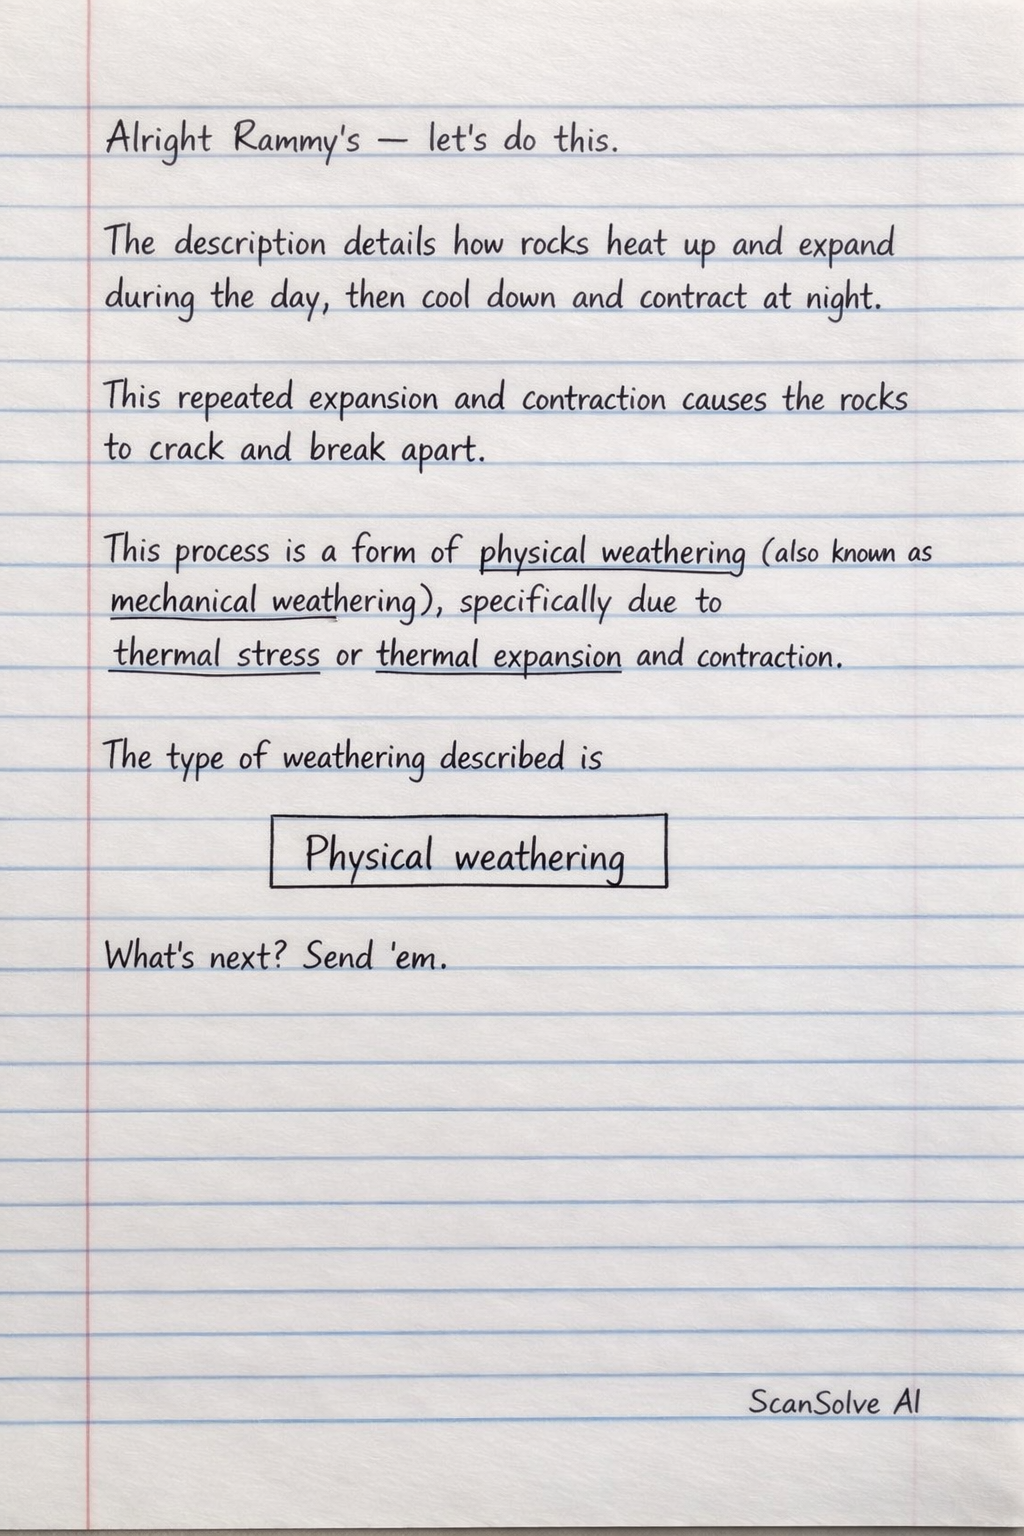 Alright Rammy's — let's do this.
The description details how rocks heat up and expand
during the day, then cool down and contract at night.
This repeated expansion and contraction causes the rocks
to crack and break apart.
This process is a form of physical weathering (also known as
mechanical weathering), specifically due to
thermal stress or thermal expansion and contraction.
The type of weathering described is
Physical weathering
What's next? Send 'em.
ScanSolve AI